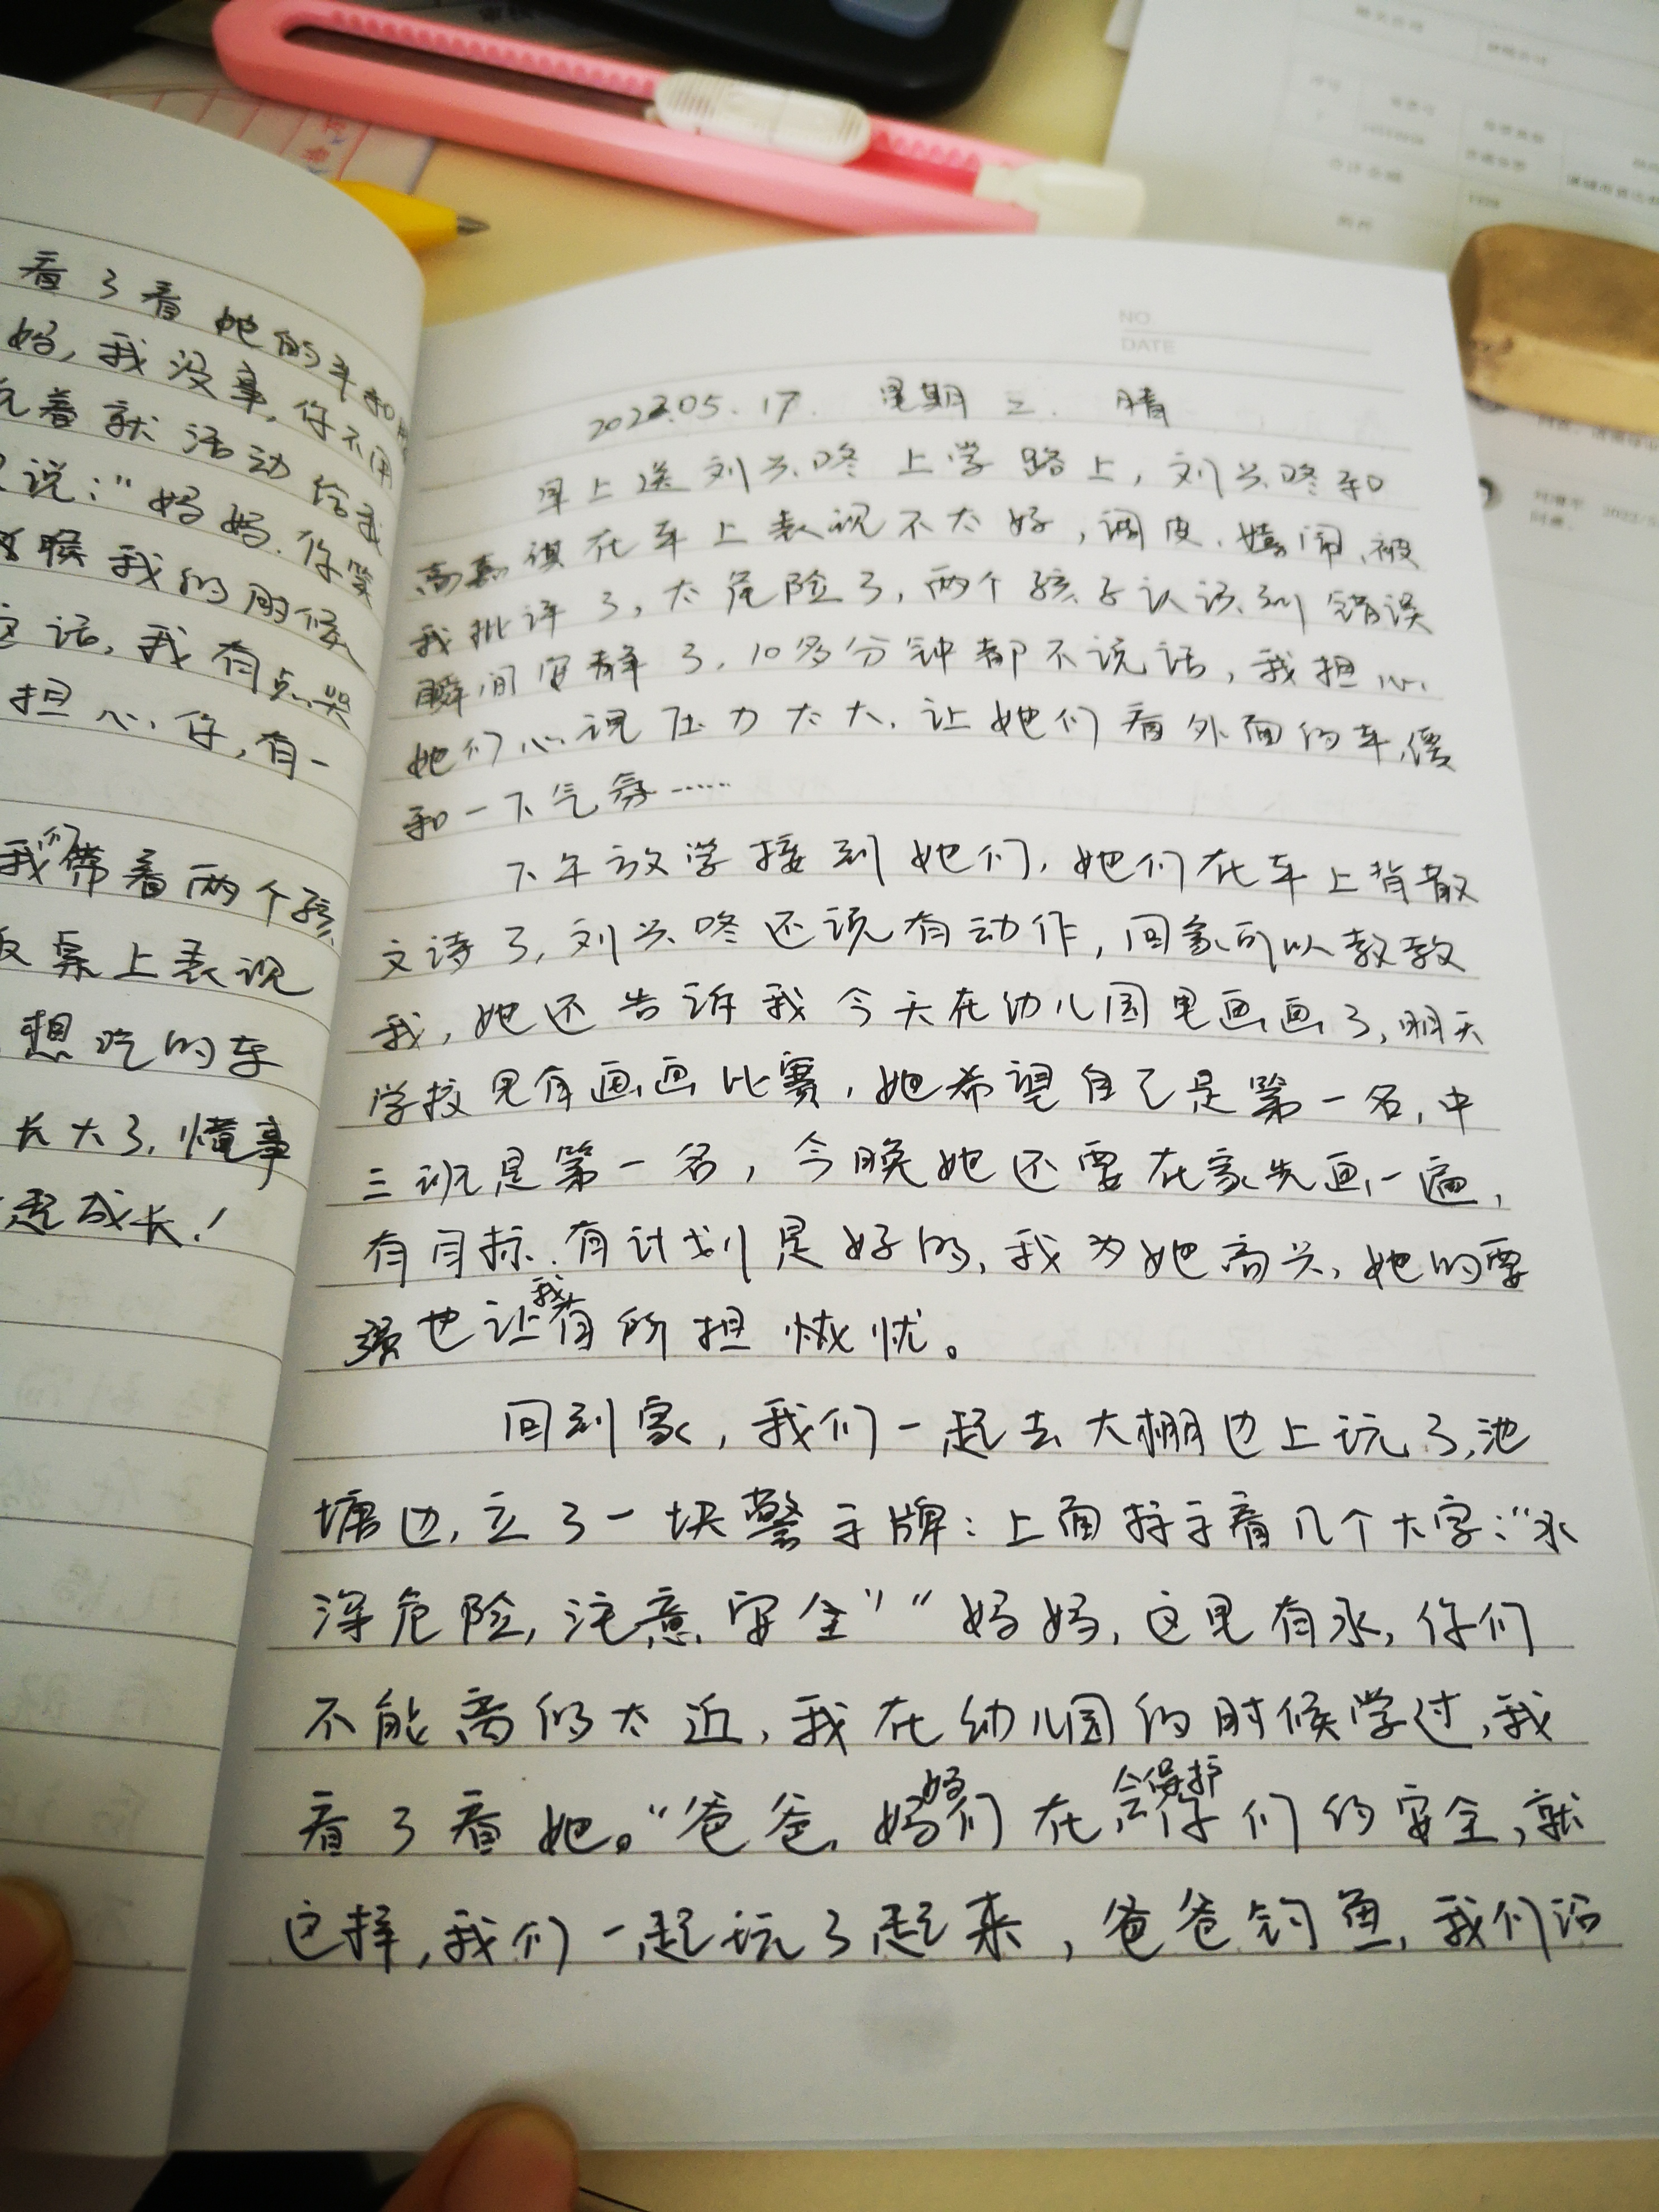 看了看她的车和
妈,我没事,你不用
玩着就活动给我
说:“妈妈.你笑
候我的时候
这话,我有点哭
担心你,有一
我们带着两个孩
饭桌上表现
想吃的车
长大了,懂事
起成长!
NO
DATE
2023.05.17. 星期三. 晴
早上送刘兴咚上学路上,刘兴咚和
高嘉祺在车上表现不太好,调皮、嬉闹,被
我批评了,太危险了,两个孩子认识到错误
瞬间安静了.10多分钟都不说话,我担心
她们心理压力太大.让她们看外面的车,缓
和一下气氛……
下午放学接到她们,她们在车上背散
文诗了,刘兴咚还说有动作,回家可以教教
我,她还告诉我今天在幼儿园里画画了,明天
学校里有画画比赛,她希望自己是第一名,中
三班是第一名,今晚她还要在家先画一遍,
有目标.有计划是好的,我为她高兴,她的要
强也让我有所担忧。
回到家,我们一起去大棚边上玩了,池
塘边,立了一块警示牌:上面标示着几个大字:“水
深危险,注意安全”“妈妈,这里有水,你们
不能离的太近,我在幼儿园的时候学过,我
看了看她。“爸爸、妈妈们在会保护你们的安全,就
这样,我们一起玩了起来,爸爸钓鱼,我们沿